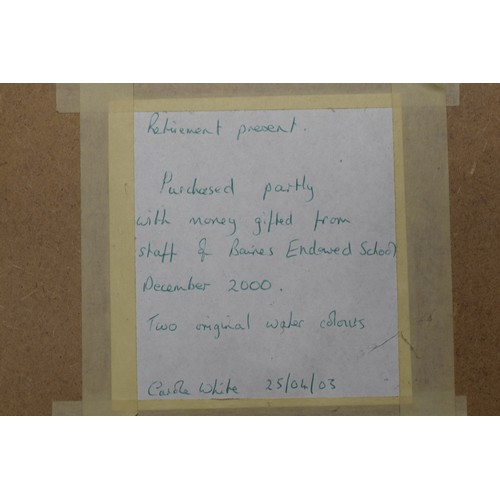 Retirement present.
Purchased partly
with money gifted from
staff of Baines Endowed School
December 2000.
Two original water colours
Carole White 25/04/03